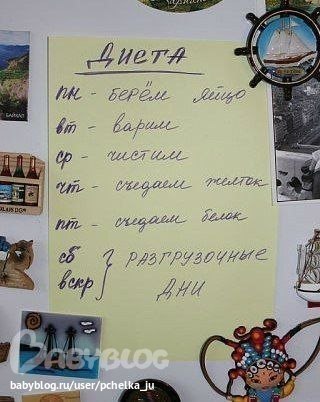 ДИЕТА
пн - берём яйцо
вт - варим
ср - чистим
чт - съедаем желток
пт - съедаем белок
сб
вскр } РАЗГРУЗОЧНЫЕ
ДНИ
БАЙКАЛ
BABYBLOG
babyblog.ru/user/pchelka_ju